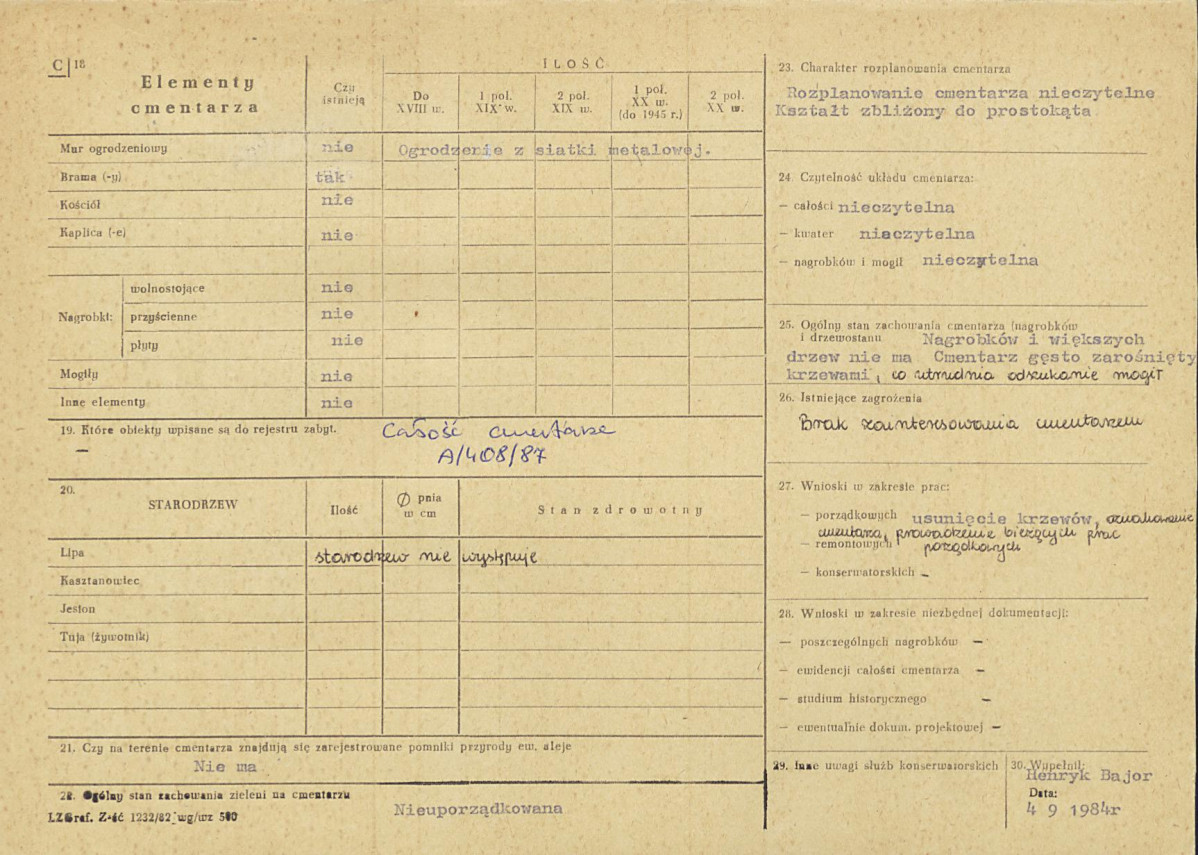 C 18
Elementy
cmentarza
Czy
istnieją
ILOŚĆ
Do
XVIII w.
1 pol.
XIX w.
2 pol.
XIX w.
1 pol.
XX w.
(do 1945 r.)
2 pol.
XX w.
Mur ogrodzeniowy nie Ogrodzenie z siatki metalowej.
Brama (-y) tak
Kościół nie
Kaplica (-e) nie
Nagrobki:
wolnostojące nie
przyścienne nie
płyty nie
Mogiły nie
Inne elementy nie
19. Które obiekty wpisane są do rejestru zabyt. Całość cmentarza
— A/408/87
20.
STARODRZEW Ilość Ø pnia
w cm
Stan zdrowotny
Lipa starodrzew nie występuje
Kasztanowiec
Jesion
Tuja (żywotnik)
21. Czy na terenie cmentarza znajdują się zarejestrowane pomniki przyrody ew. aleje
Nie ma
22. Ogólny stan zachowania zieleni na cmentarzu
Nieuporządkowana
LZGraf. Z-ść 1232/82 wg/wz 500
23. Charakter rozplanowania cmentarza
Rozplanowanie cmentarza nieczytelne
Kształt zbliżony do prostokąta
24. Czytelność układu cmentarza:
— całości nieczytelna
— kwater nieczytelna
— nagrobków i mogił nieczytelna
25. Ogólny stan zachowania cmentarza (nagrobków
i drzewostanu Nagrobków i większych
drzew nie ma Cmentarz gęsto zarośnięty
krzewami, co utrudnia odszukanie mogił
26. Istniejące zagrożenia
Brak zainteresowania cmentarzem
27. Wnioski w zakresie prac:
— porządkowych usunięcie krzewów, oznakowanie
cmentarza, prowadzenie bieżących prac
— remontowych porządkowych
— konserwatorskich –
28. Wnioski w zakresie niezbędnej dokumentacji:
— poszczególnych nagrobków —
— ewidencji całości cmentarza —
— studium historycznego —
— ewentualnie dokum. projektowej —
29. Inne uwagi służb konserwatorskich
30. Wypełnił:
Henryk Bajor
Data:
4 9 1984r